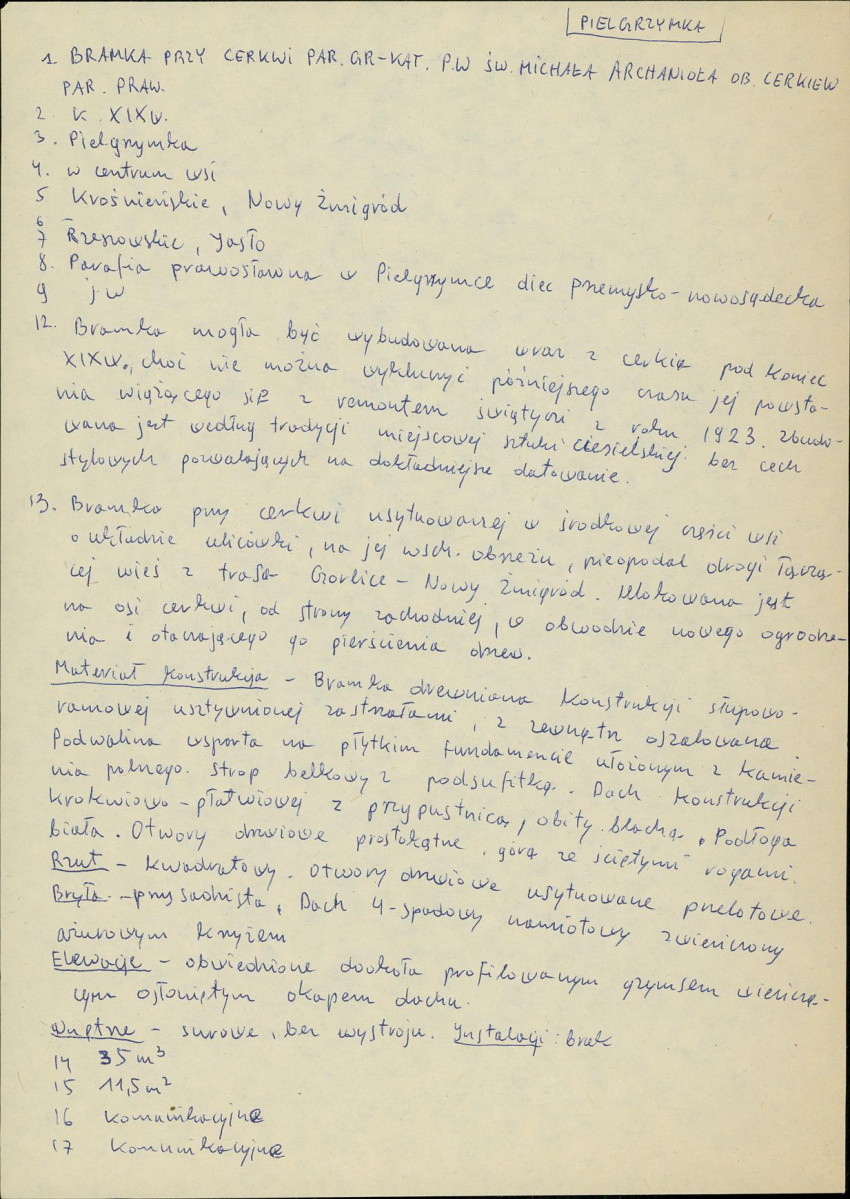 PIELGRZYMKA
1. BRAMKA PRZY CERKWI PAR. GR-KAT. P.W ŚW. MICHAŁA ARCHANIOŁA OB. CERKIEW
PAR. PRAW.
2. K. XIXw.
3. Pielgrzymka
4. w centrum wsi
5 Krośnieńskie, Nowy Żmigród
6 –
7 Rzeszowskie, Jasło
8. Parafia prawosławna w Pielgrzymce diec przemysko-nowosądecka
9 j w
12. Bramka mogła być wybudowana wraz z cerkią pod koniec
XIXw., choć nie można wykluczyć późniejszego czasu jej powsta-
nia wiążącego się z remontem świątyni z roku 1923. Zbudo-
wana jest według tradycji miejscowej sztuki ciesielskiej bez cech
stylowych pozwalających na dokładniejsze datowanie.
13. Bramka przy cerkwi usytuowanej w środkowej części wsi
o układzie ulicówki, na jej wsch. obrzeżu, nieopodal drogi łączą-
cej wieś z trasą Gorlice – Nowy Żmigród. Ulokowana jest
na osi cerkwi, od strony zachodniej, w obwodzie nowego ogrodze-
nia i otaczającego go pierścienia drzew.
Materiał konstrukcja – Bramka drewniana konstrukcji słupowo-
ramowej usztywnionej zastrzałami, z zewnątrz oszalowana.
Podwalina wsparta na płytkim fundamencie ułożonym z kamie-
nia polnego. Strop belkowy z podsufitką. Dach konstrukcji
krokwiowo-płatwiowej z przypustnicą, obity blachą. Podłoga
biała. Otwory drzwiowe prostokątne górą ze ściętymi rogami.
Rzut – kwadratowy. Otwory drzwiowe usytuowane przelotowe.
Bryła – przysadzista, Dach 4-spadowy namiotowy zwieńczony
ażurowym krzyżem
Elewacje – obwiedzione dookoła profilowanym gzymsem wieńczą-
cym osłoniętym okapem dachu.
Wnętrze – surowe, bez wystroju. Instalacji: brak
14 35 m³
15 11,5 m²
16 komunikacyjne
17 komunikacyjne